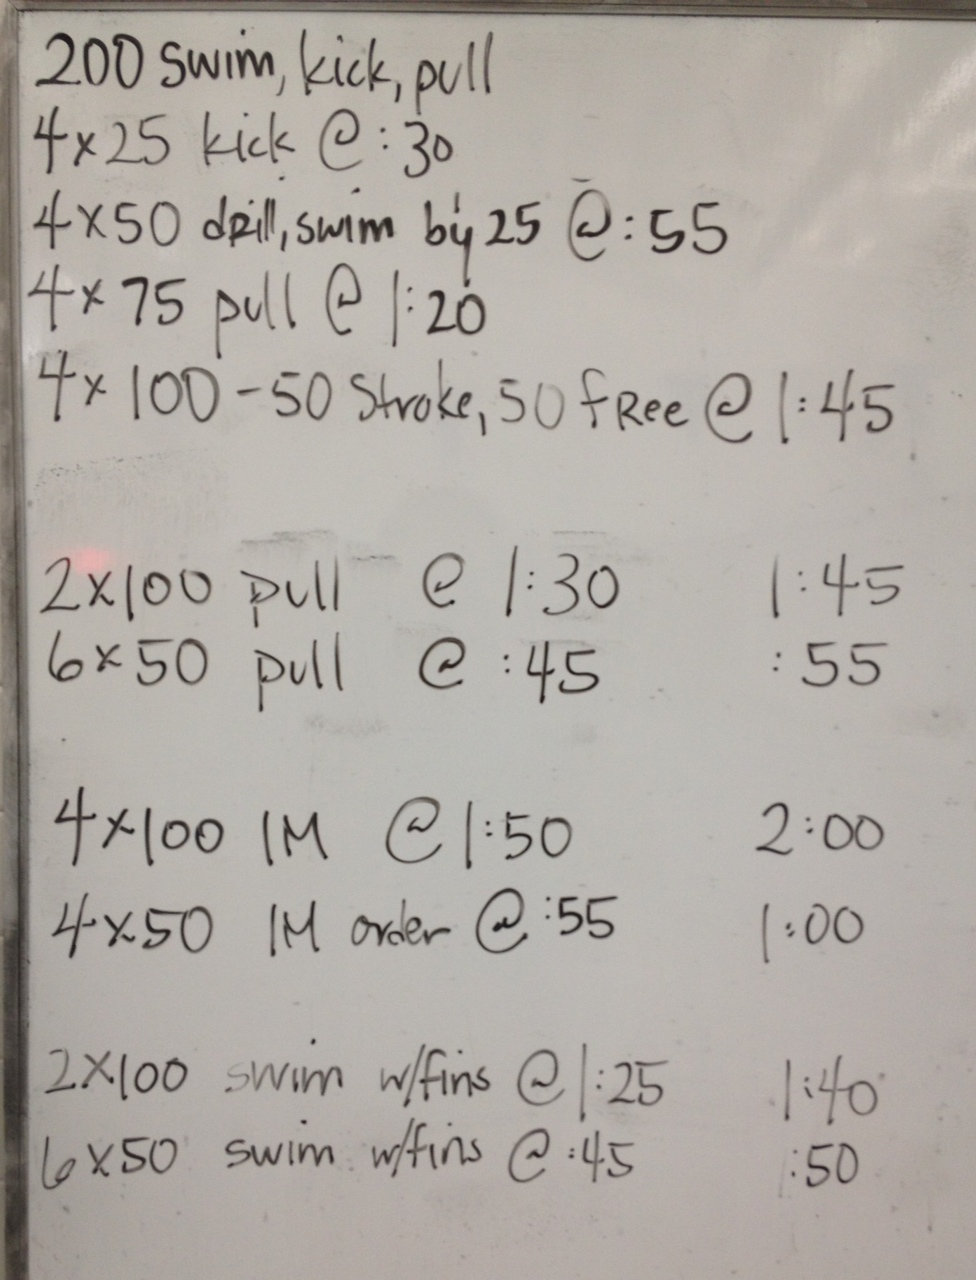 200 swim, kick, pull
4x25 kick @ :30
4x50 drill, swim by 25 @ :55
4x 75 pull @ 1:20
4x 100 - 50 Stroke, 50 fRee @ 1:45
2x100 pull @ 1:30 1:45
6x50 pull @ :45 :55
4x100 IM @ 1:50 2:00
4x50 IM order @ :55 1:00
2x100 swim w/fins @ 1:25 1:40
6x50 swim w/fins @ :45 :50